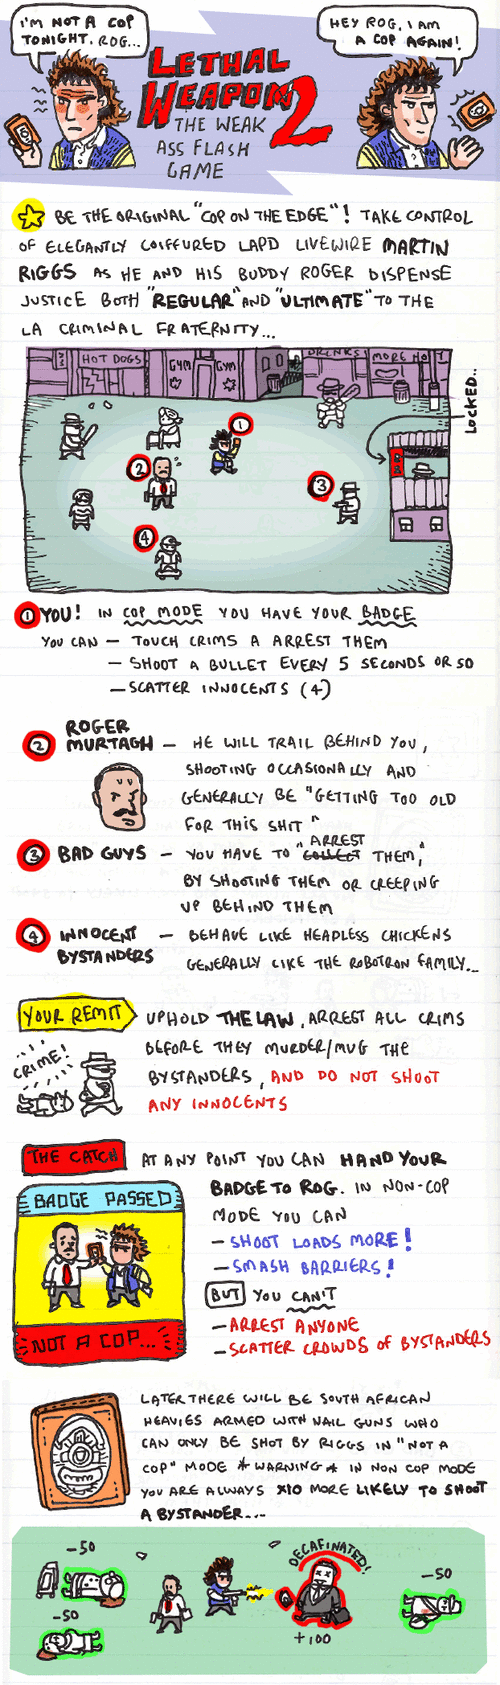 I'M NOT A COP
TONIGHT, ROG...
HEY ROG, I AM
A COP AGAIN!
LETHAL
WEAPON 2
THE WEAK
ASS FLASH
GAME
BE THE ORIGINAL "COP ON THE EDGE"! TAKE CONTROL
OF ELEGANTLY COIFFURED LAPD LIVEWIRE MARTIN
RIGGS AS HE AND HIS BUDDY ROGER DISPENSE
JUSTICE BOTH "REGULAR" AND "ULTIMATE" TO THE
LA CRIMINAL FRATERNITY...
HOT DOGS
GYM
GYM
DRINKS
MORE HOT
LOCKED..
1
2
3
4
1 YOU! IN COP MODE YOU HAVE YOUR BADGE
YOU CAN — TOUCH CRIMS A ARREST THEM
— SHOOT A BULLET EVERY 5 SECONDS OR SO
— SCATTER INNOCENTS (4)
2 ROGER
MURTAGH — HE WILL TRAIL BEHIND YOU,
SHOOTING OCCASIONALLY AND
GENERALLY BE "GETTING TOO OLD
FOR THIS SHIT"
3 BAD GUYS — YOU HAVE TO "COLLECT ARREST THEM,"
BY SHOOTING THEM OR CREEPING
UP BEHIND THEM
4 INNOCENT — BEHAVE LIKE HEADLESS CHICKENS
BYSTANDERS GENERALLY LIKE THE ROBOTRON FAMILY...
YOUR REMIT UPHOLD THE LAW, ARREST ALL CRIMS
BEFORE THEY MURDER/MUG THE
CRIME!
BYSTANDERS, AND DO NOT SHOOT
ANY INNOCENTS
THE CATCH AT ANY POINT YOU CAN HAND YOUR
BADGE TO ROG. IN NON-COP
MODE YOU CAN
— SHOOT LOADS MORE!
— SMASH BARRIERS!
BUT YOU CAN'T
— ARREST ANYONE
— SCATTER CROWDS OF BYSTANDERS
BADGE PASSED
NOT A COP...
LATER THERE WILL BE SOUTH AFRICAN
HEAVIES ARMED WITH NAIL GUNS WHO
CAN ONLY BE SHOT BY RIGGS IN "NOT A
COP" MODE * WARNING * IN NON COP MODE
YOU ARE ALWAYS X10 MORE LIKELY TO SHOOT
A BYSTANDER...
-50
-50
DECAFINATED!
+100
-50